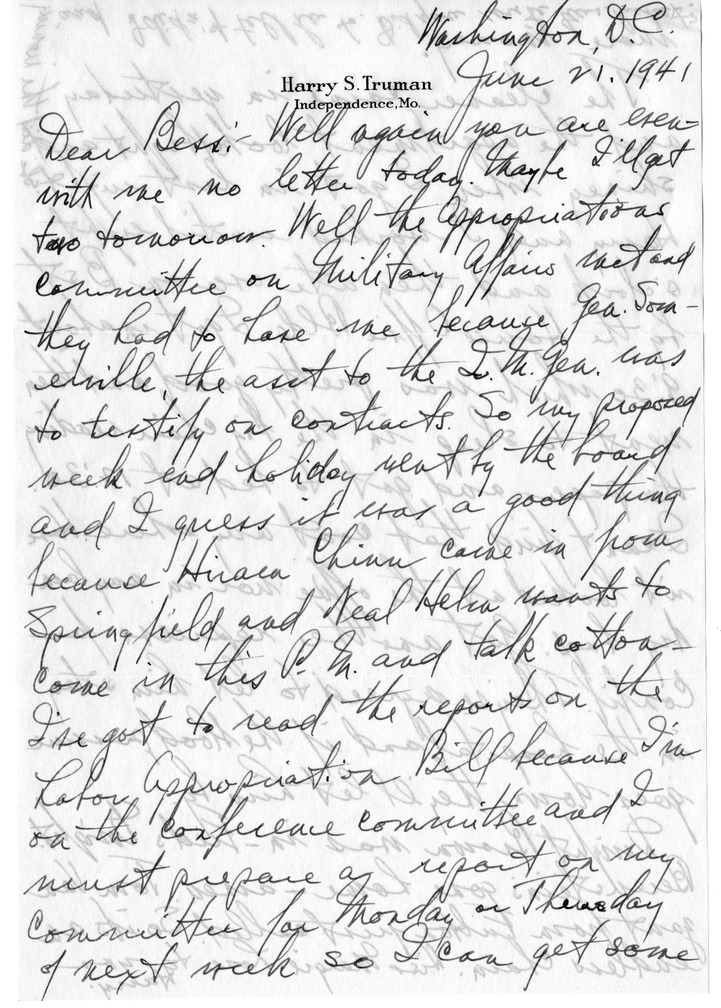 Washington, D.C.
June 21, 1941
Harry S. Truman
Independence, Mo.
Dear Bess:- Well again you are even-
with me no letter today. Maybe I'll get
two tomorrow. Well the Appropriations
committee on Military Affairs met and
they had to have me because Gen. Som-
erville, the asst to the Q.M. Gen. was
to testify on contracts. So my proposed
week end holiday went by the board
and I guess it was a good thing
because Hiram Chinn came in from
Springfield and Neal Helm wants to
come in this P.M. and talk cotton-
I've got to read the reports on the
Labor Appropriation Bill because I'm
on the conference committee and I
must prepare a report on my
committee for Monday or Thursday
of next week so I can get some